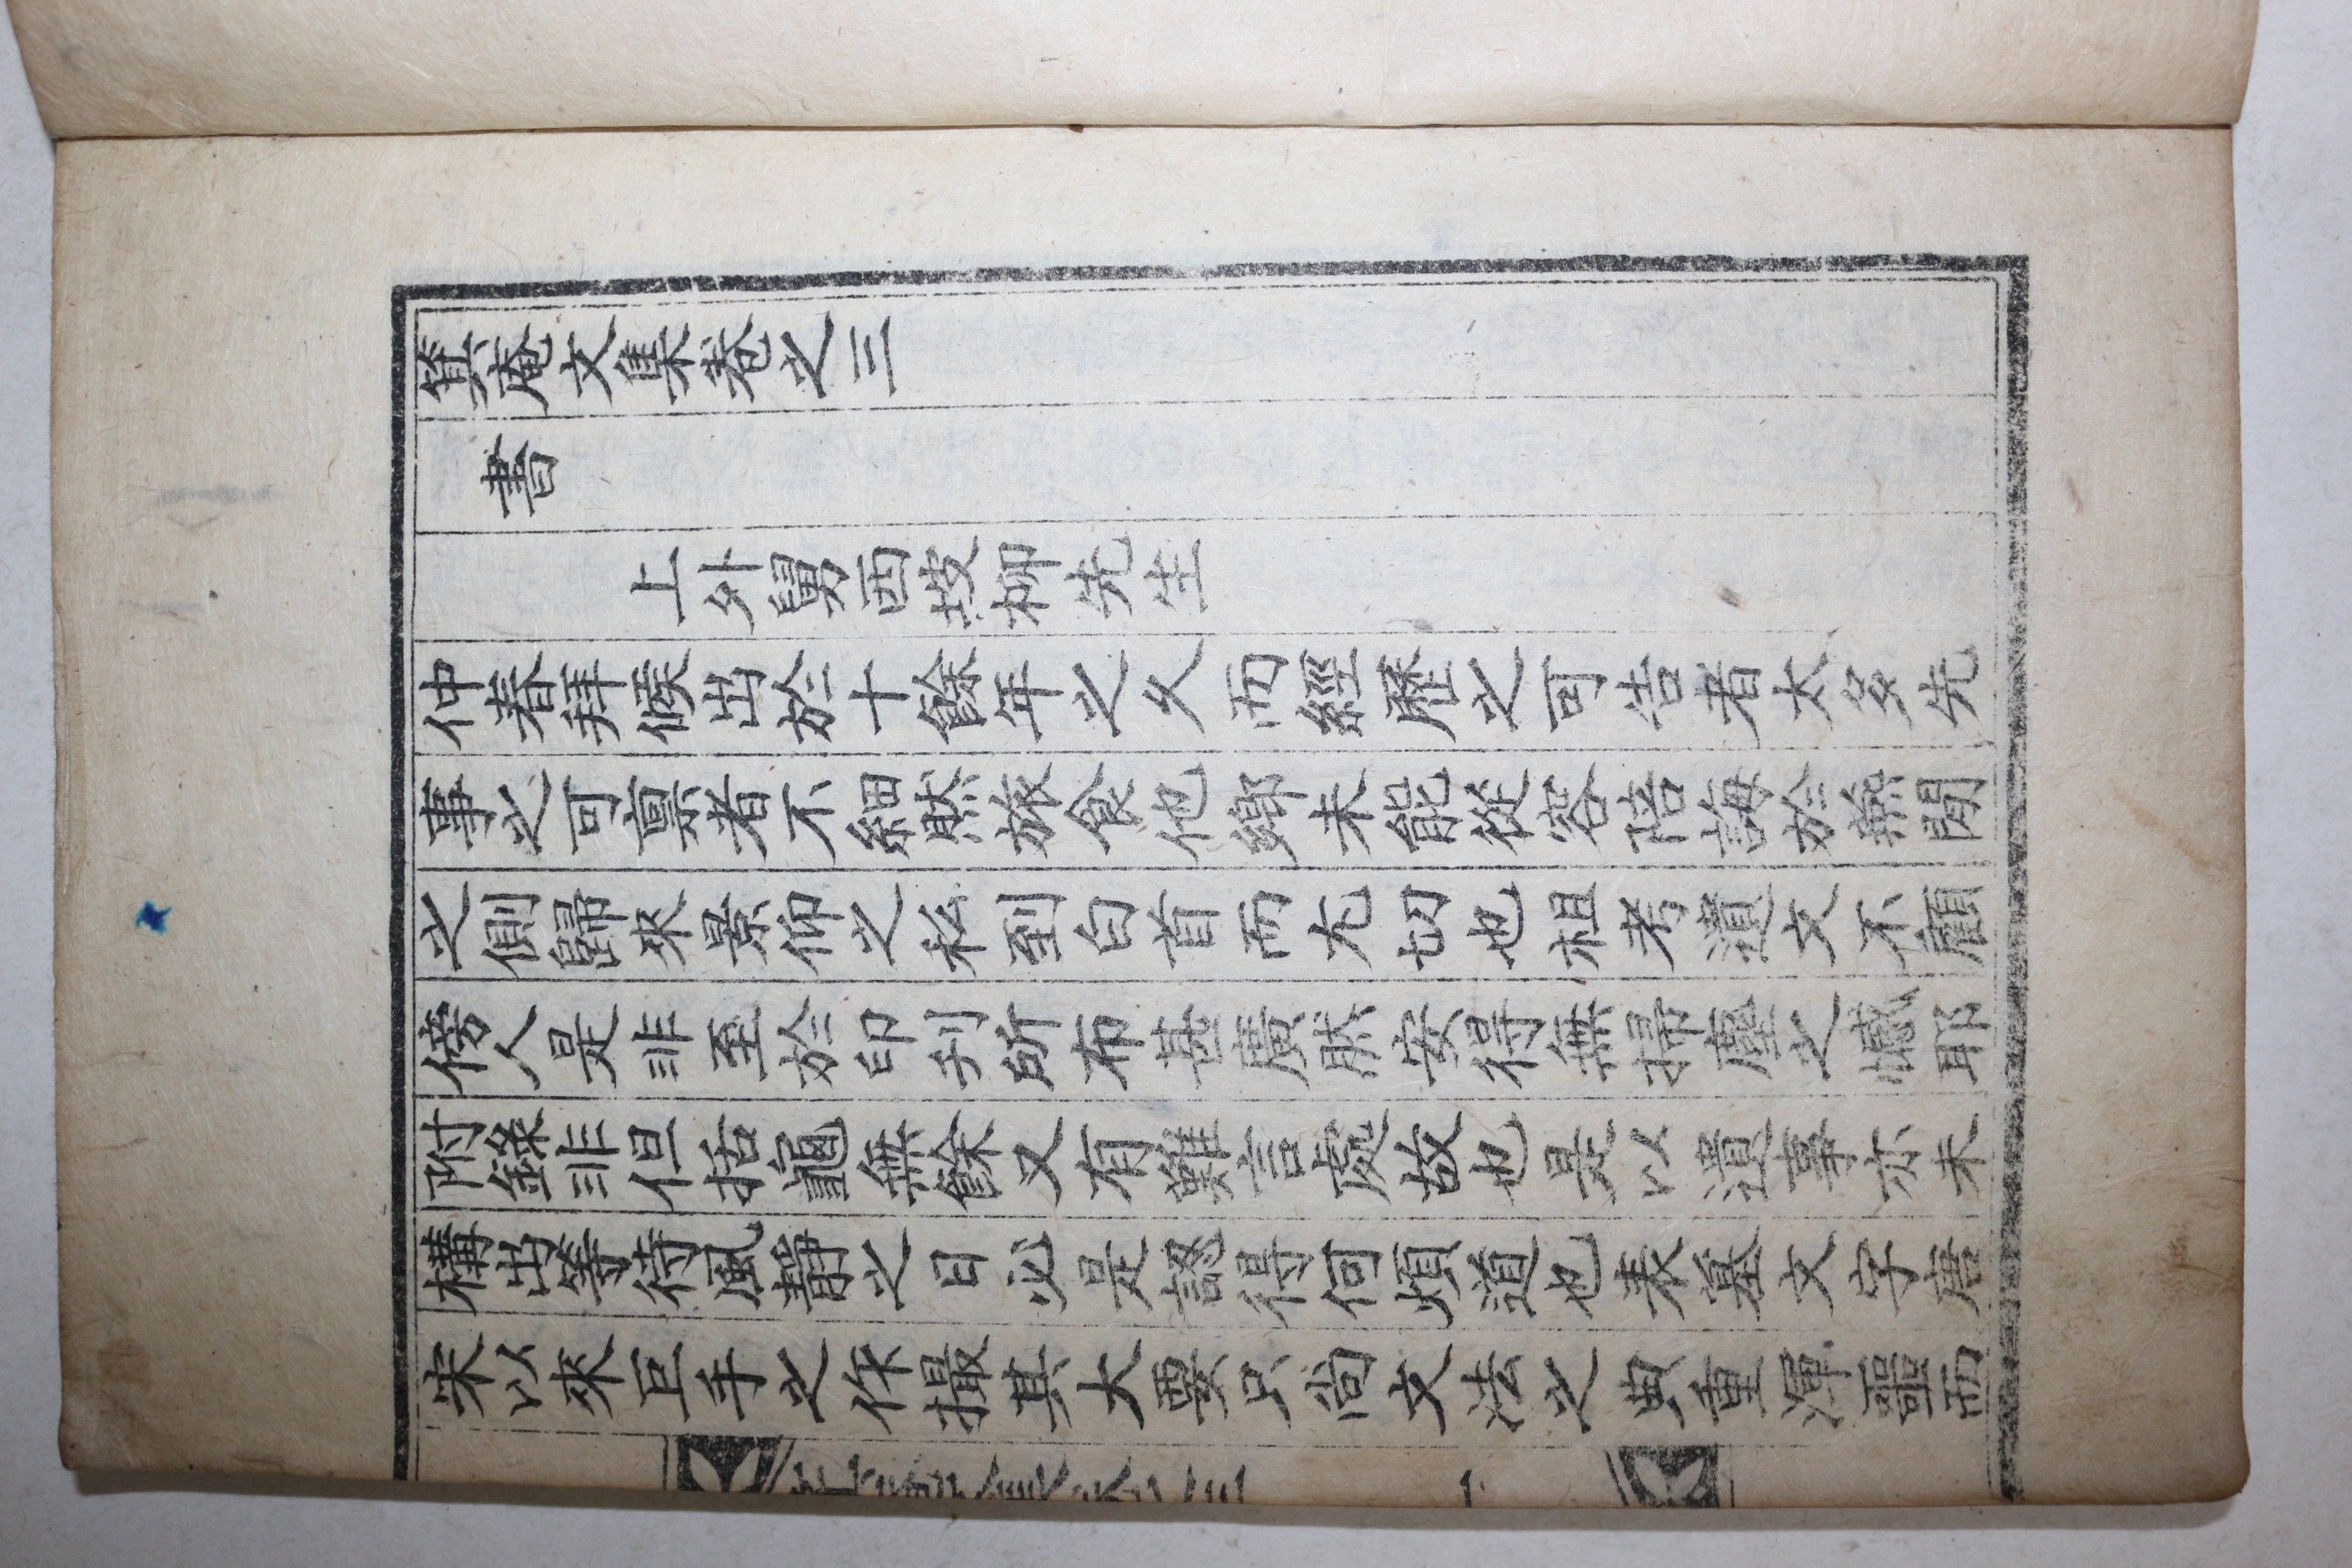 箕庵文集卷之三
書
上外舅西坡柳先生
仲春拜候出於十餘年之久而經歷之可告者太多先
事之可禀者不細然旅食他鄉未能從容陪誨於燕閒
之側歸來景仰之私到白首而尤切也祖考遺文不顧
傍人是非至於印刋所布甚廣然安得無掃塵之憾耶
附錄非但括龜無餘又有難言處故也是以遺事亦未
構出等待風靜之日必是認得何煩道也表墓文字唐
宋以來巨手之作撮其大要只尚文法之典重渾噩而